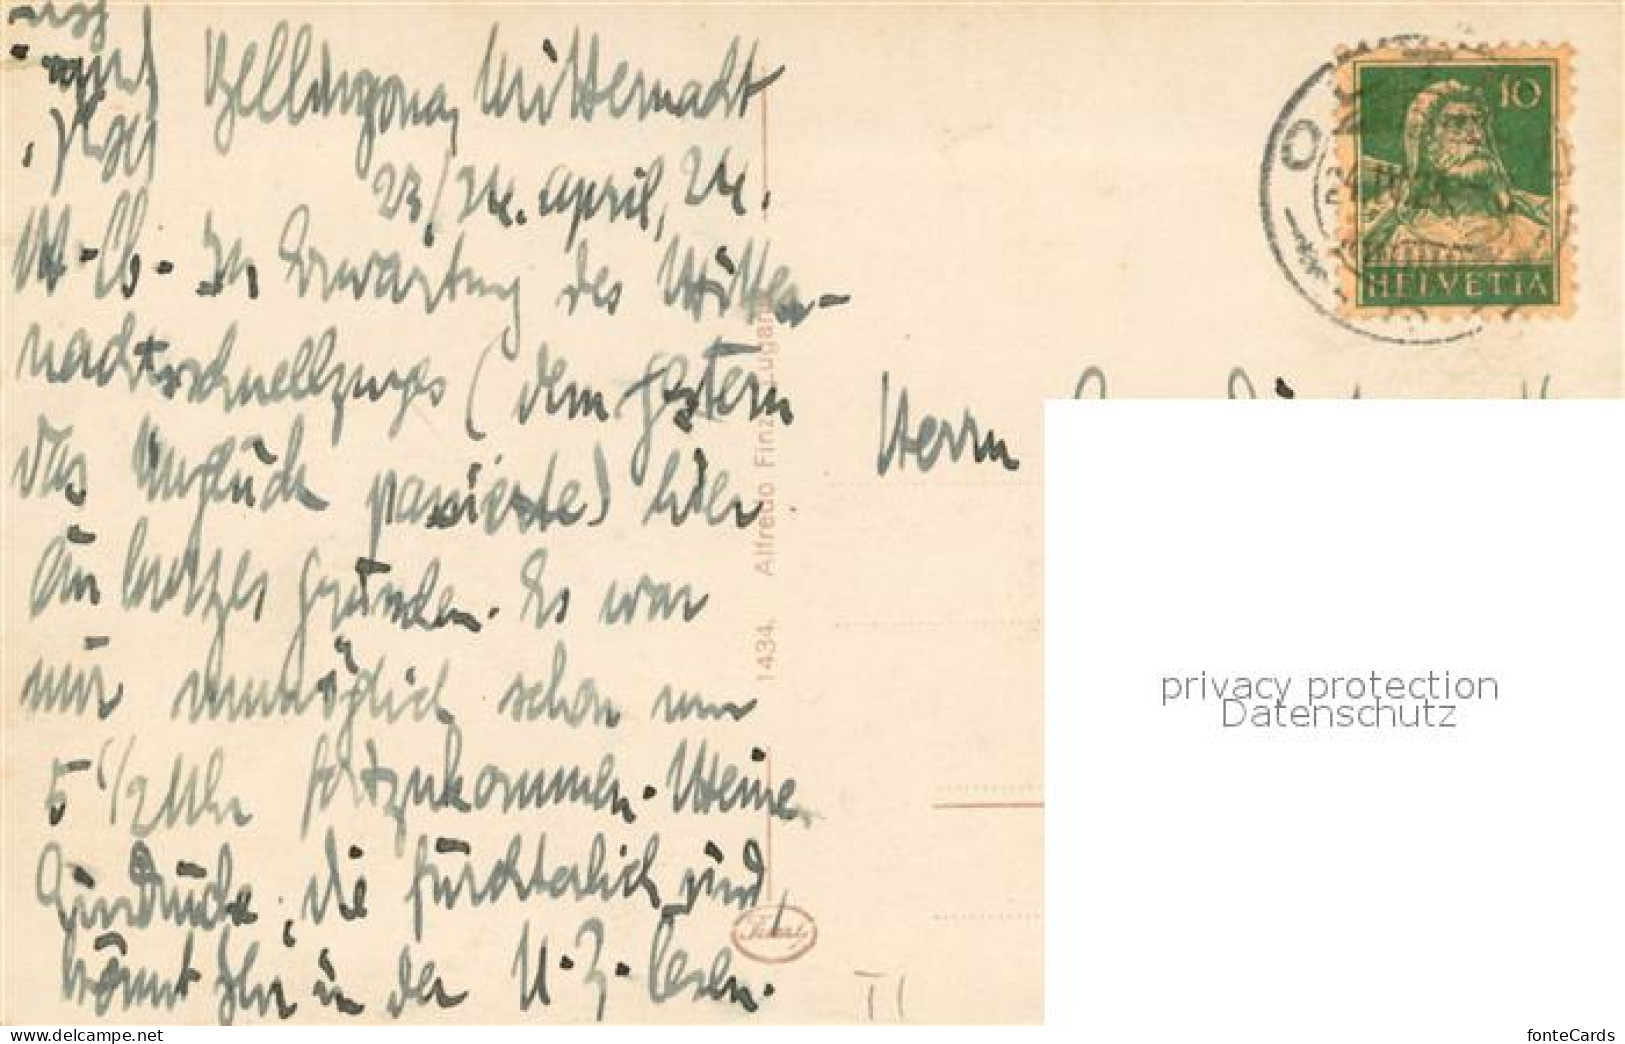 Bellinzona, Mitternacht
23/24. April, 24.
M. Lb. In Erwartung des Mitter-
nachtschnellzuges (dem gestern
das Unglück passierte) hier
ein kurzes Grüsschen. Es war
mir unmöglich schon um
5 1/2 Uhr fortzukommen. Meine
Eindrücke, die fürchterlich sind,
könnt Ihr in der N. Z. lesen.
1434. Alfredo Finzi, Lugano
10
HELVETIA
Herrn
privacy protection
Datenschutz
delcampe.net
fonteCards